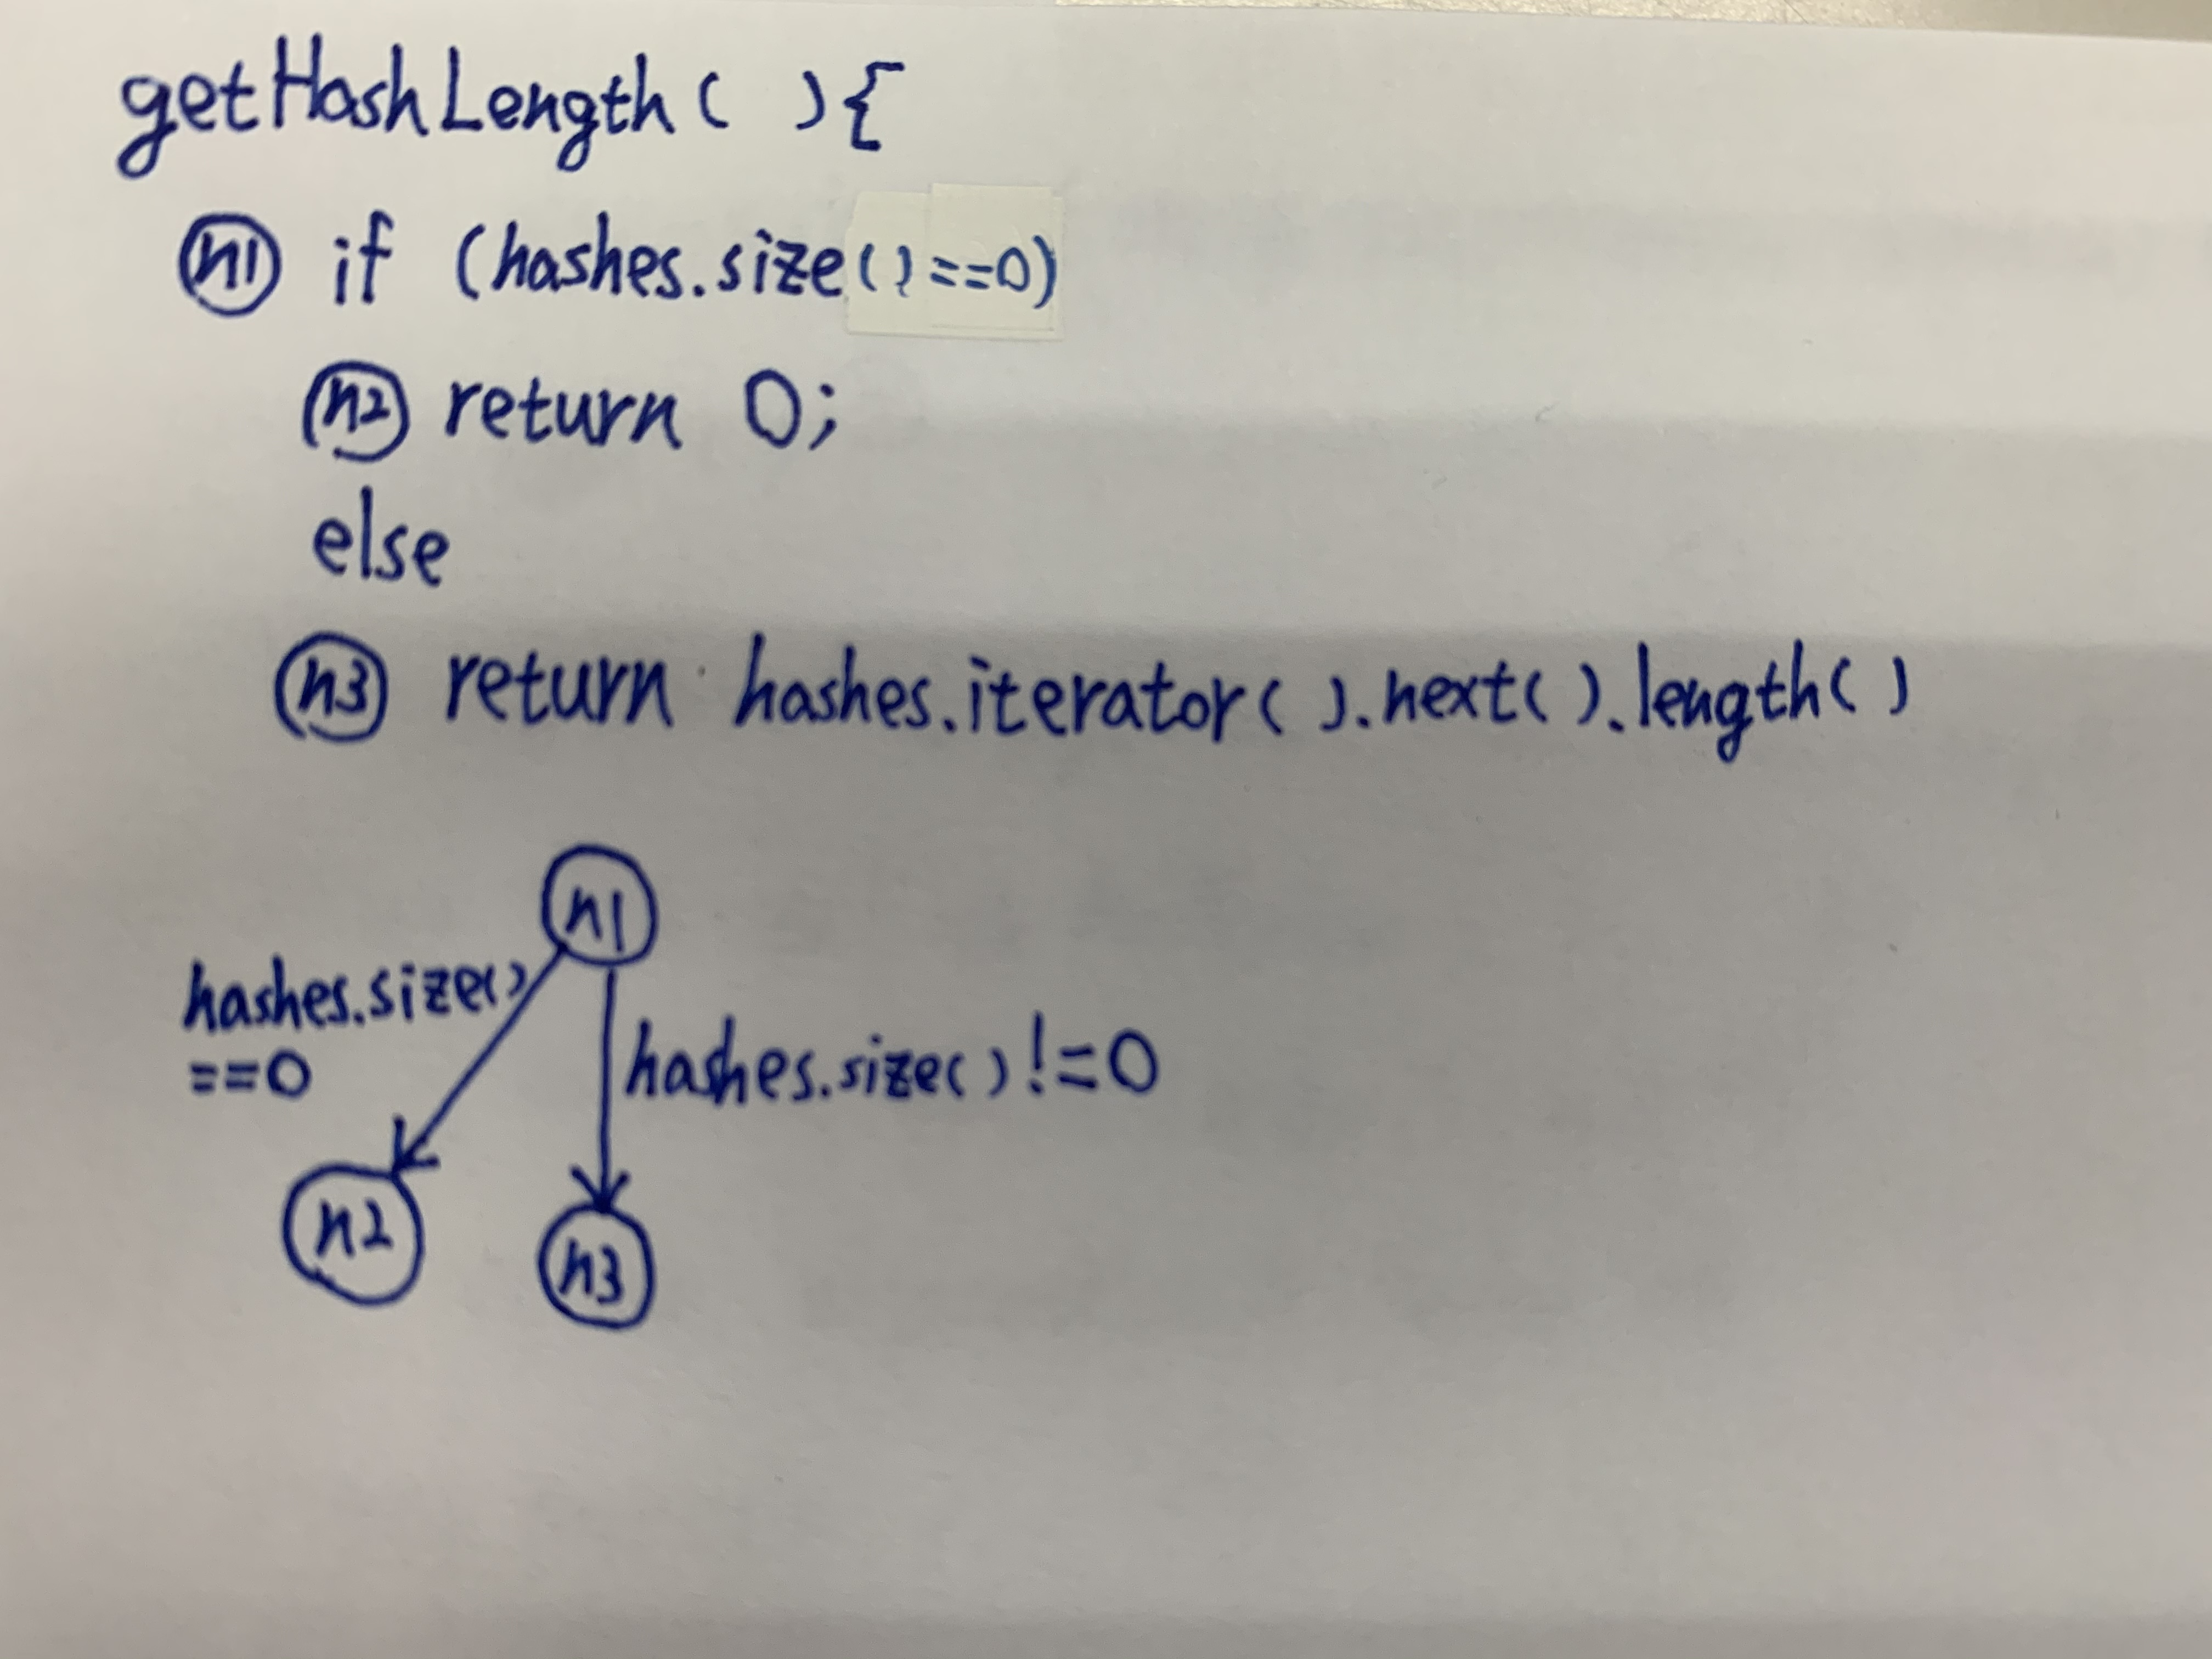 getHashLength( ){
n1 if (hashes.size()==0)
n2 return 0;
else
n3 return hashes.iterator().next().length()
n1
hashes.size()
==0
hashes.size()!=0
n2
n3